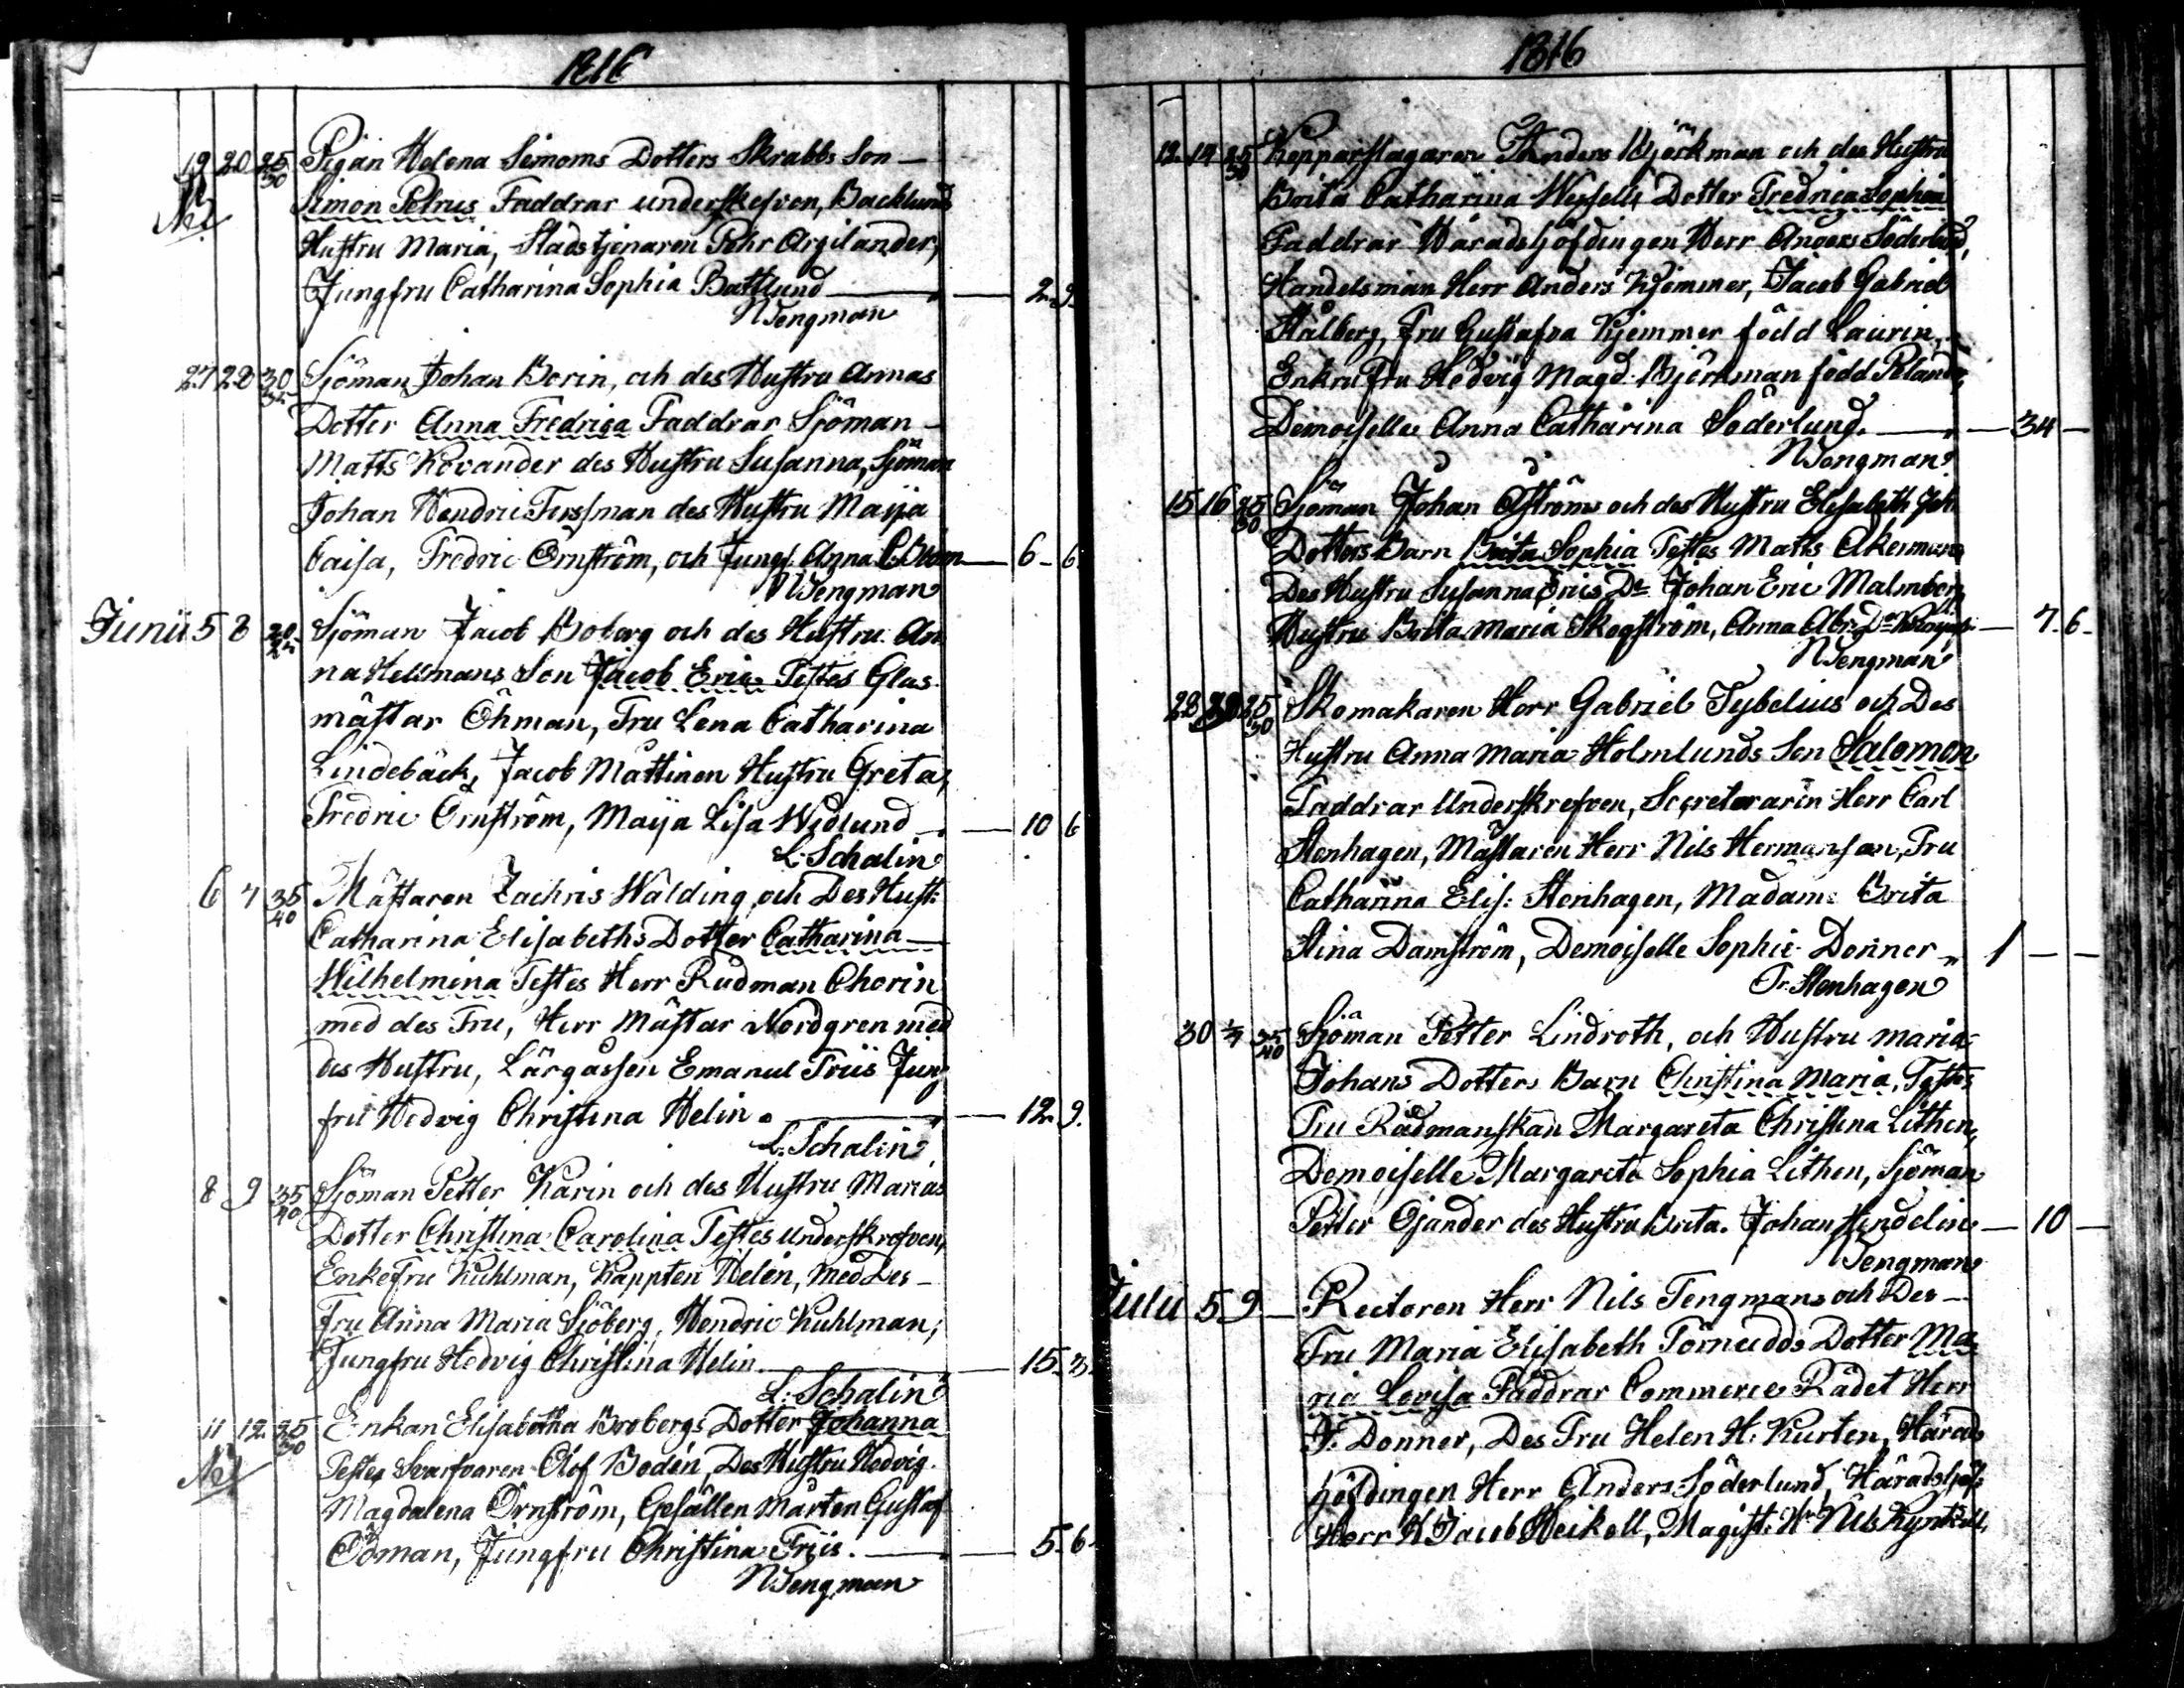 1816
19 20 25/30 Pigan Helena Simoms Dotters Skrabbs Son —
Simon Petrus Faddrar underskefven, Backlunds
Hustru Maria, Stadstjenaren Pehr Argilander,
Jungfru Catharina Sophia Battlund — 2. 9.
NTengman
27 28 30/35 Sjöman Johan Borin, och des Hustru Annas
Dotter Anna Fredrica Faddrar Sjöman —
Matts Kovander des Hustru Susanna, Sjöman
Johan Hendric Forssman des Hustru Maija
Caisa, Fredric Örnström, och Jungf. Anna C. Blom — 6 — 6.
NTengman
Junii 5 8 20/25 Sjöman Jacob Boberg och des Hustru An
na Hellmans Son Jacob Eric Testes Glas-
mästar Öhman, Fru Lena Catharina
Lindebäck, Jacob Mattinen Hustru Greta,
Fredric Örnström, Maija Lisa Widlund — 10 6
L: Schalin
6 7 35/40 Mästaren Zachris Walding, och Des Hust:
Catharina Elisabeths Dotter Catharina —
Wilhelmina Testes Herr Rudman Chorin
med des Fru, Herr Mästar Nordgren med
des Hustru, Lärgåssen Emanuel Friis Jung
fru Hedvig Christina Helin. — 12. 9.
L: Schalin
8 9 35/40 Sjöman Petter Karin och des Hustru Marias
Dotter Christina Carolina Testes underskrefven,
Enkefru Kuhlman, Kappten Helén, med Des —
Fru Anna Maria Sjöberg, Hendric Kuhlman,
Jungfru Hedvig Christina Helin — 15. 3.
L: Schalin
11 12 25/30 Enkan Elisabetha Brobergs Dotter Johanna
Testes Svarfvaren Olof Bodén, Des Hustru Hedvig
Magdalena Örnström, Gesällen Mårten Gustaf
Ödman, Jungfru Christina Friis. — 5. 6.
NTengman
1816
12 14 25/30 Kopparslagaren Anders Björkman och des Hustru
Brita Catharina Wessells Dotter Fredrica Sophia
Faddrar Häradshöfdingen Herr Anders Söderlund,
Handelsman Herr Anders Kjemmer, Jacob Gabriel
Stålberg, Fru Gustafva Kjemmer född Laurin,
Enkru Fru Hedvig Magd. Björkman född Polander,
Demoiselle Anna Catharina Söderlund. — 34 —
NTengman
15 16 25/30 Sjöman Johan Åströms och des Hustru Elisabeth Joh
Dotters Barn Brita Sophia Testes Matts Åkerman
Des Hustru Susanna Erics Dr Johan Eric Malmberg
Hustru Brita Maria Skogström, Anna Abr. Dr — 7. 6.
NTengman
28 29 25/30 Skomakaren Herr Gabriel Tybelius och Des
Hustru Anna Maria Holmlunds Son Salomon
Faddrar Underskrefven, Secreterarin Herr Carl
Stenhagen, Mästaren Herr Nils Hermanson, Fru
Catharina Elis: Stenhagen, Madame Brita
Stina Damström, Demoiselle Sophie Donner — 1 — —
Fr. Stenhagen
30 35/40 Sjöman Petter Lindroth, och Hustru Maria
Johans Dotters Barn Christina Maria, Testes
Fru Rådmanskan Margareta Christina Lithen,
Demoiselle Margareta Sophia Lithen, Sjöman
Petter Ojander des Hustru Brita. Johan Hindelin — 10 —
NTengman
Julii 5 9 — Rectoren Herr Nils Tengmans och Des —
Fru Maria Elisabeth Törnudds Dotter Ma-
ria Lovisa Faddrar Commerce Rådet Herr
P. Donner, Des Fru Helen H: Kurten, Härads
höfdingen Herr Anders Söderlund, Häradshöf:
Herr H Jacob Heikell, Magist: Hr Nils Kyntzell,